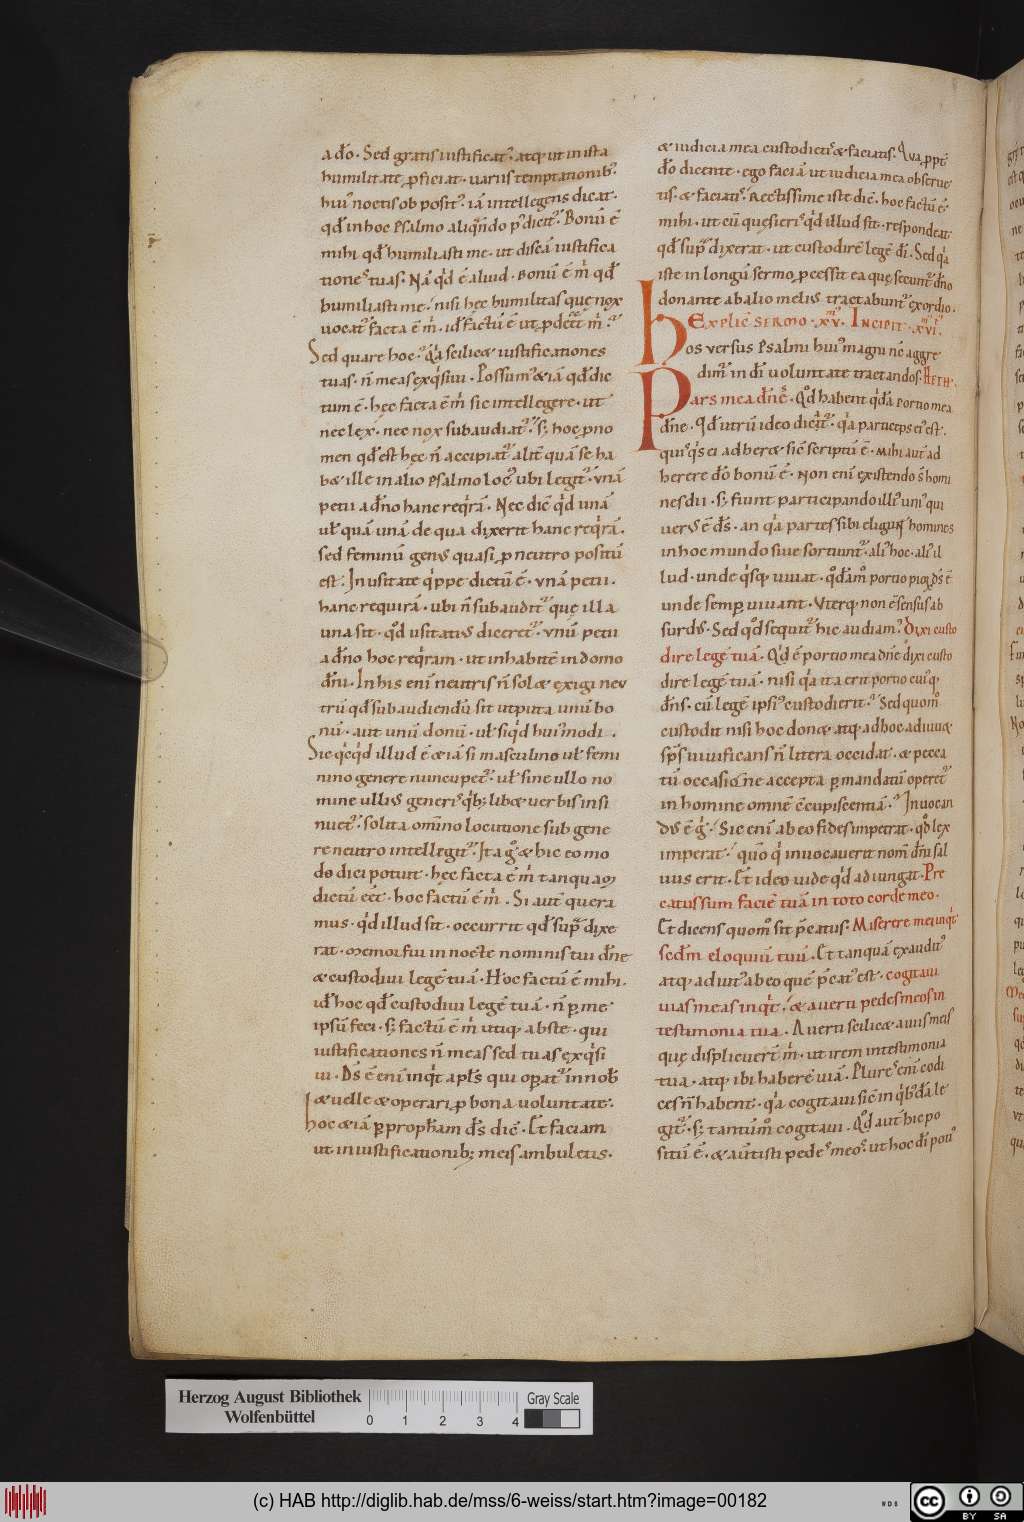 a dō. Sed gratis iustificat᷒. atq; ut in ista
humilitate ꝓficiat. uariis temptationib᷒.
hui᷒ noctis ob posit᷒. iā intellegens dicat.
qđ in hoc psalmo aliqn̄do p᷒ dicit᷒. Bonū ē
mihi qđ humiliasti me. ut discā iustifica
tiones tuas. Nā qd ē aliud. bonū ē m̄ qđ
humiliasti me. nisi hęc humilitas quę nox
uocat᷒ facta ē m̄. id̄ factū ē ut ꝓdēet m̄.
Sed quare hoc. qa scilicet iustificationes
tuas. n̄ meas exqsiui. Possum᷒ & iā qđ dic
tum ē. hęc facta ē m̄ sic intellegere. ut
nec lex. nec nox subaudiat᷒. s; hoc ꝓno
men qđ est hęc n̄ accipiat᷒ alit̄ quā se ha
bet ille in alio psalmo loc᷒ ubi legit᷒. unā
petii a dn̄o hanc reqrā. Nec dic̄ qd unā
ut quā unā. de qua dixerit hanc reqrā.
sed femininū genus quasi ꝓ neutro positū
est. Inusitate qppe dictū ē. unā petii.
hanc requirā. ubi n̄ subaudit᷒ quę illa
una sit. qđ usitatius diceret᷒. unū petii
a dn̄o hoc reqram. ut inhabitē in domo
dn̄i. In his enī neutris n̄ solet exigi neu
trū qđ subaudiendū sit utputa unū bo
nū. aut unū donū. ut siqd hui᷒ modi.
Sic qcqd illud ē & iā si masculino ut femi
nino genere nuncupet᷒. ut sine ullo no
mine ullius generis qb; libet uerbis insi
nuet᷒. solita omīno locutione sub gene
re neutro intellegit᷒. Ita g̊ & hic eo mo
do dici potuit. hęc facta ē m̄ tanquam
dictū eēt. hoc factū ē m̄. Si aut̄ quera
mus. qd illud sit. occurrit qđ sup̄ dixe
rat. memor fui in nocte nominis tui dn̄e
& custodiui legē tuā. Hoc factū ē mihi.
id̄ hoc qđ custodiui legē tuā. n̄ ꝑ me
ipsū feci. s; factū ē m̄ utiq; abs te. qui
iustificationes n̄ meas sed tuas exqsi
ui. Ds̄ ē enī inqt apls̄ qui opat᷒ in nob̄
& uelle & operari ꝓ bona uoluntate.
hoc & iā ꝑ propham ds̄ dic̄. Et faciam
ut in iustificationib; meis ambuletis.
& iudicia mea custodietis & faciatis. Qua ꝓpt̄
dō dicente. ego faciā ut iudicia mea obserue
tis. & faciatis. Rectissime iste dic̄. hoc factū ē
mihi. ut cū quesieris qd illud sit. respondeat
qđ sup̄ dixerat. ut custodirē legē dī. Sed qa
iste in longū sermo ꝓcessit ea quę secunt᷒ dn̄o
donante ab alio melius tractabunt᷒ exordio.
Explic̄ sermo. xv. Incipit. xvi.
hos versus psalmi hui᷒ magni nc̄ aggre
dimur in dī uoluntate tractandos. Heth.
Pars mea dn̄e. Qđ habent qda portio mea
dn̄e. Qd utrū ideo dicit᷒. qa particeps ei᷒ est.
quisqs ei adheret sic̄ scriptū ē. mihi aut̄ ad
herere dō bonū ē. Non enī existendo s̄ homi
nes dii. s; fiunt participando illi᷒ uni᷒ qui
uerus ē ds̄. an qa partes sibi eligunt homines
in hoc mundo siue sortiunt᷒. ali᷒ hoc. ali᷒ il
lud. unde qsq; uiuat. qdam̄ portio pioꝝ ds̄ ē
unde semꝑ uiuant. Uterq; non ē sensus ab
surdus. Sed qđ sequit᷒ hic audiam᷒. Dixi custo
dire legē tuā. Qd ē portio mea dn̄e dixi custo
dire legē tuā. nisi qa ita erit portio cui᷒q;
dn̄s. cū legē ipsi᷒ custodierit. Sed quom̊
custodit nisi hoc donet. atq; ad hoc adiuuet
sp̄s uiuificans n̄ litera occidat. & pecca
tū occasione accepta ꝑ mandatū operet᷒
in homine omnē c̄cupiscentiā. Inuocan
dus ē g̊. Sic enī ab eo fides impetrat. qđ lex
imperat. quō q̄ inuocauerit nom̄ dn̄i sal
uus erit. Et ideo uide qd adiungat. Pre
catus sum faciē tuā in toto corde meo.
Et dicens quom̊ sit p̄catus. Miserere mei inqt
scđm eloquiū tuū. Et tanquā exaudit᷒
atq; adiut᷒ ab eo quē p̄cat᷒ est. cogitaui
uias meas inqt. & auerti pedes meos in
testimonia tua. Auerti scilicet a uiis meis
quę displicuer̄t m̄. ut irem in testimonia
tua. atq; ibi haberē uiā. Plures enī codi
ces n̄ habent. qa cogitaui sic̄ in qb᷒dā le
git᷒. s; tantūm̊ cogitaui. Qđ aut̄ hic po
sitū ē. & auertisti pedes meos. ut hoc dī poti᷒
Herzog August Bibliothek
Wolfenbüttel
0 1 2 3 4
Gray Scale
(c) HAB http://diglib.hab.de/mss/6-weiss/start.htm?image=00182
cc BY SA